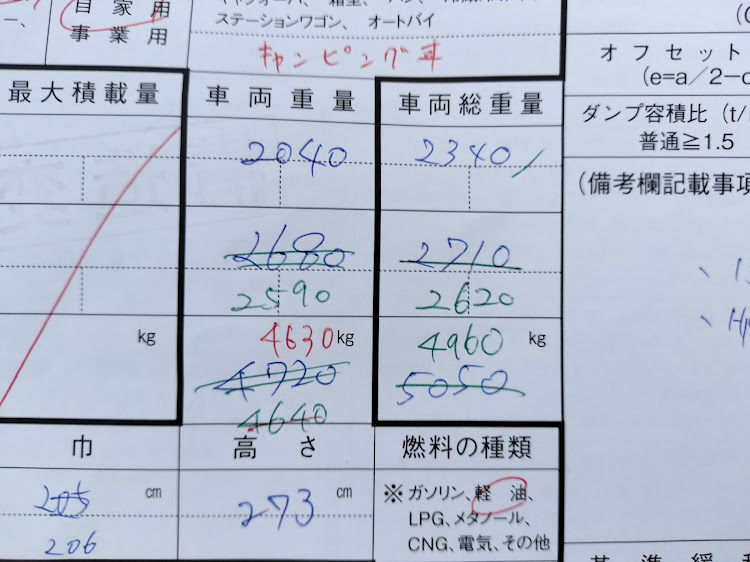 自家用
事業用
ステーションワゴン、オートバイ
キャンピング車
オフセット
(e=a/2-
最大積載量
車両重量
車両総重量
ダンプ容積比 (t/
普通≧1.5
2040
2340
(備考欄記載事項
2680
2710
2590
2620
kg
4630 kg
4960 kg
4720
5050
4640
巾
高さ
燃料の種類
205 cm
273 cm
※ガソリン、軽油、
LPG、メタノール、
206
CNG、電気、その他